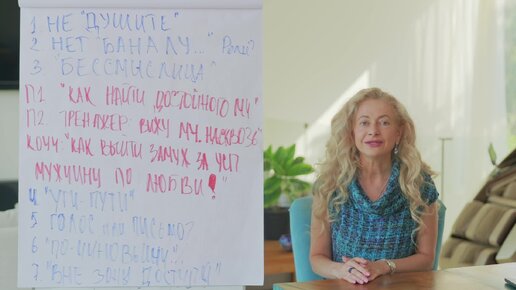 1. НЕ "ДУШИТЕ"
2. НЕТ "БАНАЛУ..." Роли?
3. "БЕССМЫСЛИЦА"
П1. "КАК НАЙТИ ДОСТОЙНОГО МЧ"
П2. ТРЕНАЖЕР: ВИЖУ МЧ. НАСКВОЗЬ
КОУЧ: "КАК ВЫЙТИ ЗАМУЖ ЗА УСП
МУЖЧИНУ ПО ЛЮБВИ!"
4. "УТИ-ПУТИ"
5 ГОЛОС ИЛИ ПИСЬМО?
6 "ПО-
7. "ВНЕ ЗОНЫ ДОСТУПА"